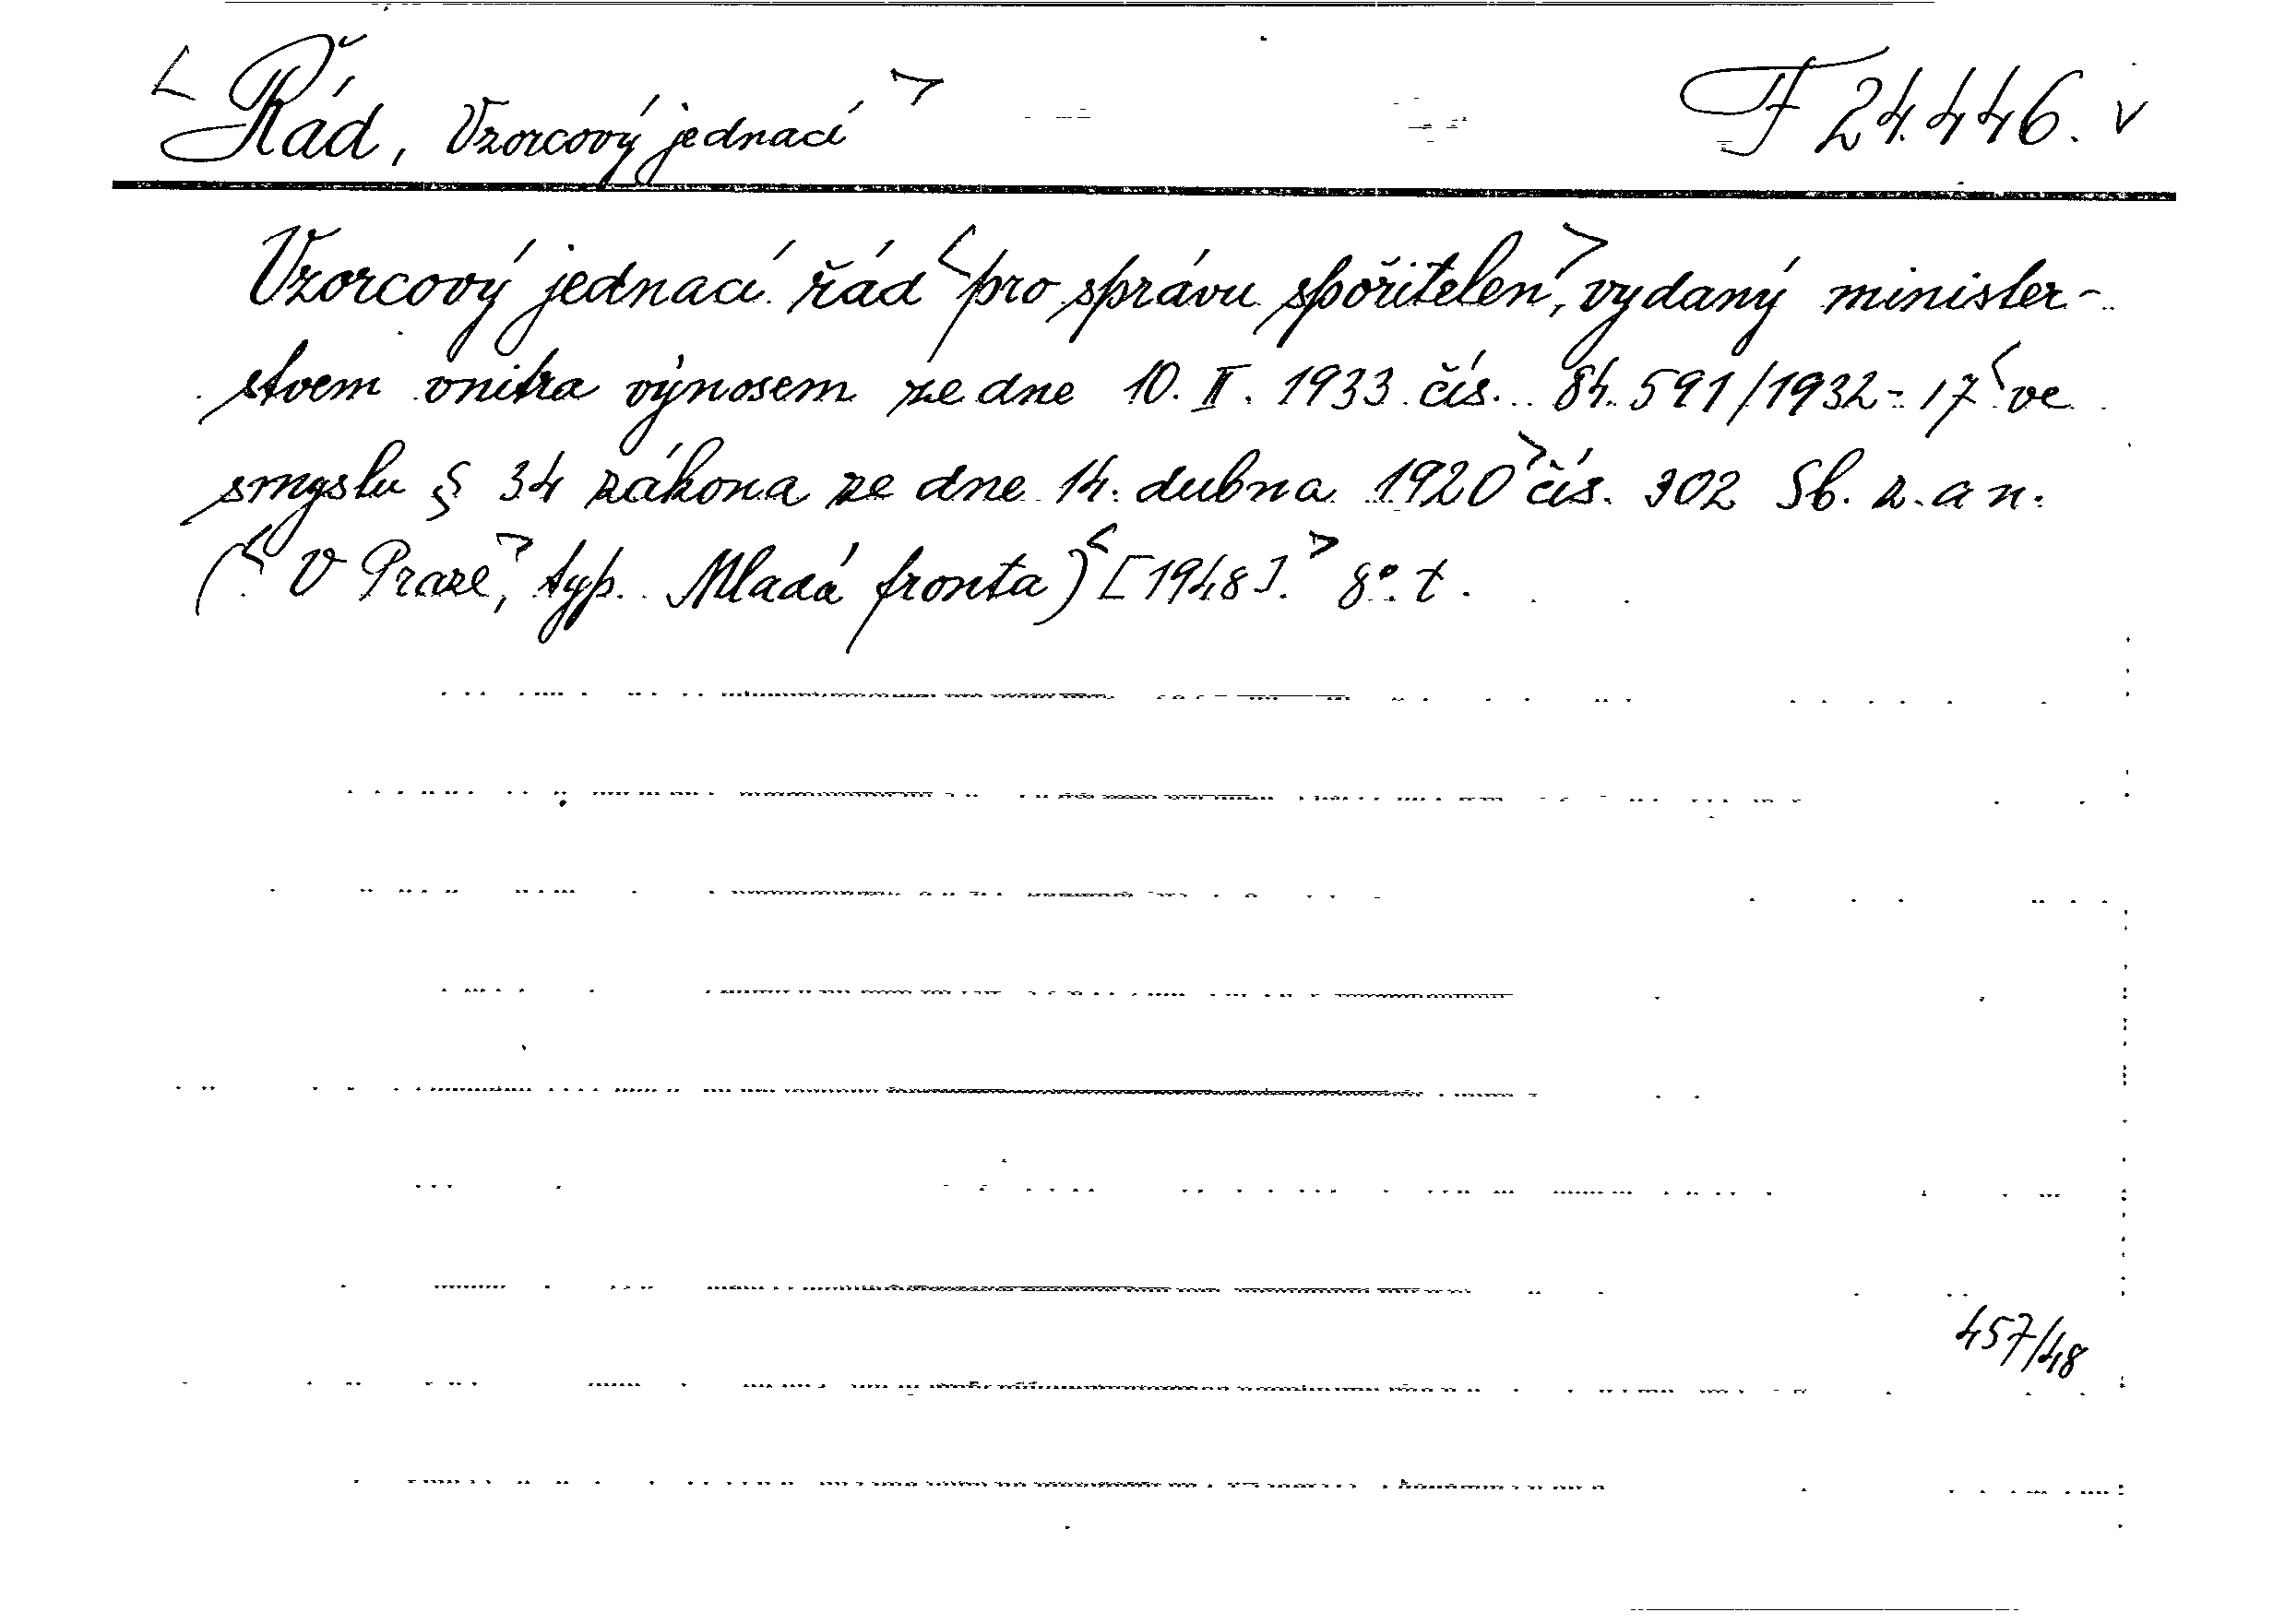 < Řád, Vzorcový jednací > F 24.446. v
Vzorcový jednací řád < pro správu spořitelen >, vydaný minister-
stvem vnitra výnosem ze dne 10. II. 1933 čís. 84.591/1932-17 < ve
smyslu § 34 zákona ze dne 14. dubna 1920 > čís. 302 Sb. z. a n.
(< V Praze >, typ. Mladá fronta) < [1948]. > 8°. t.
457/48